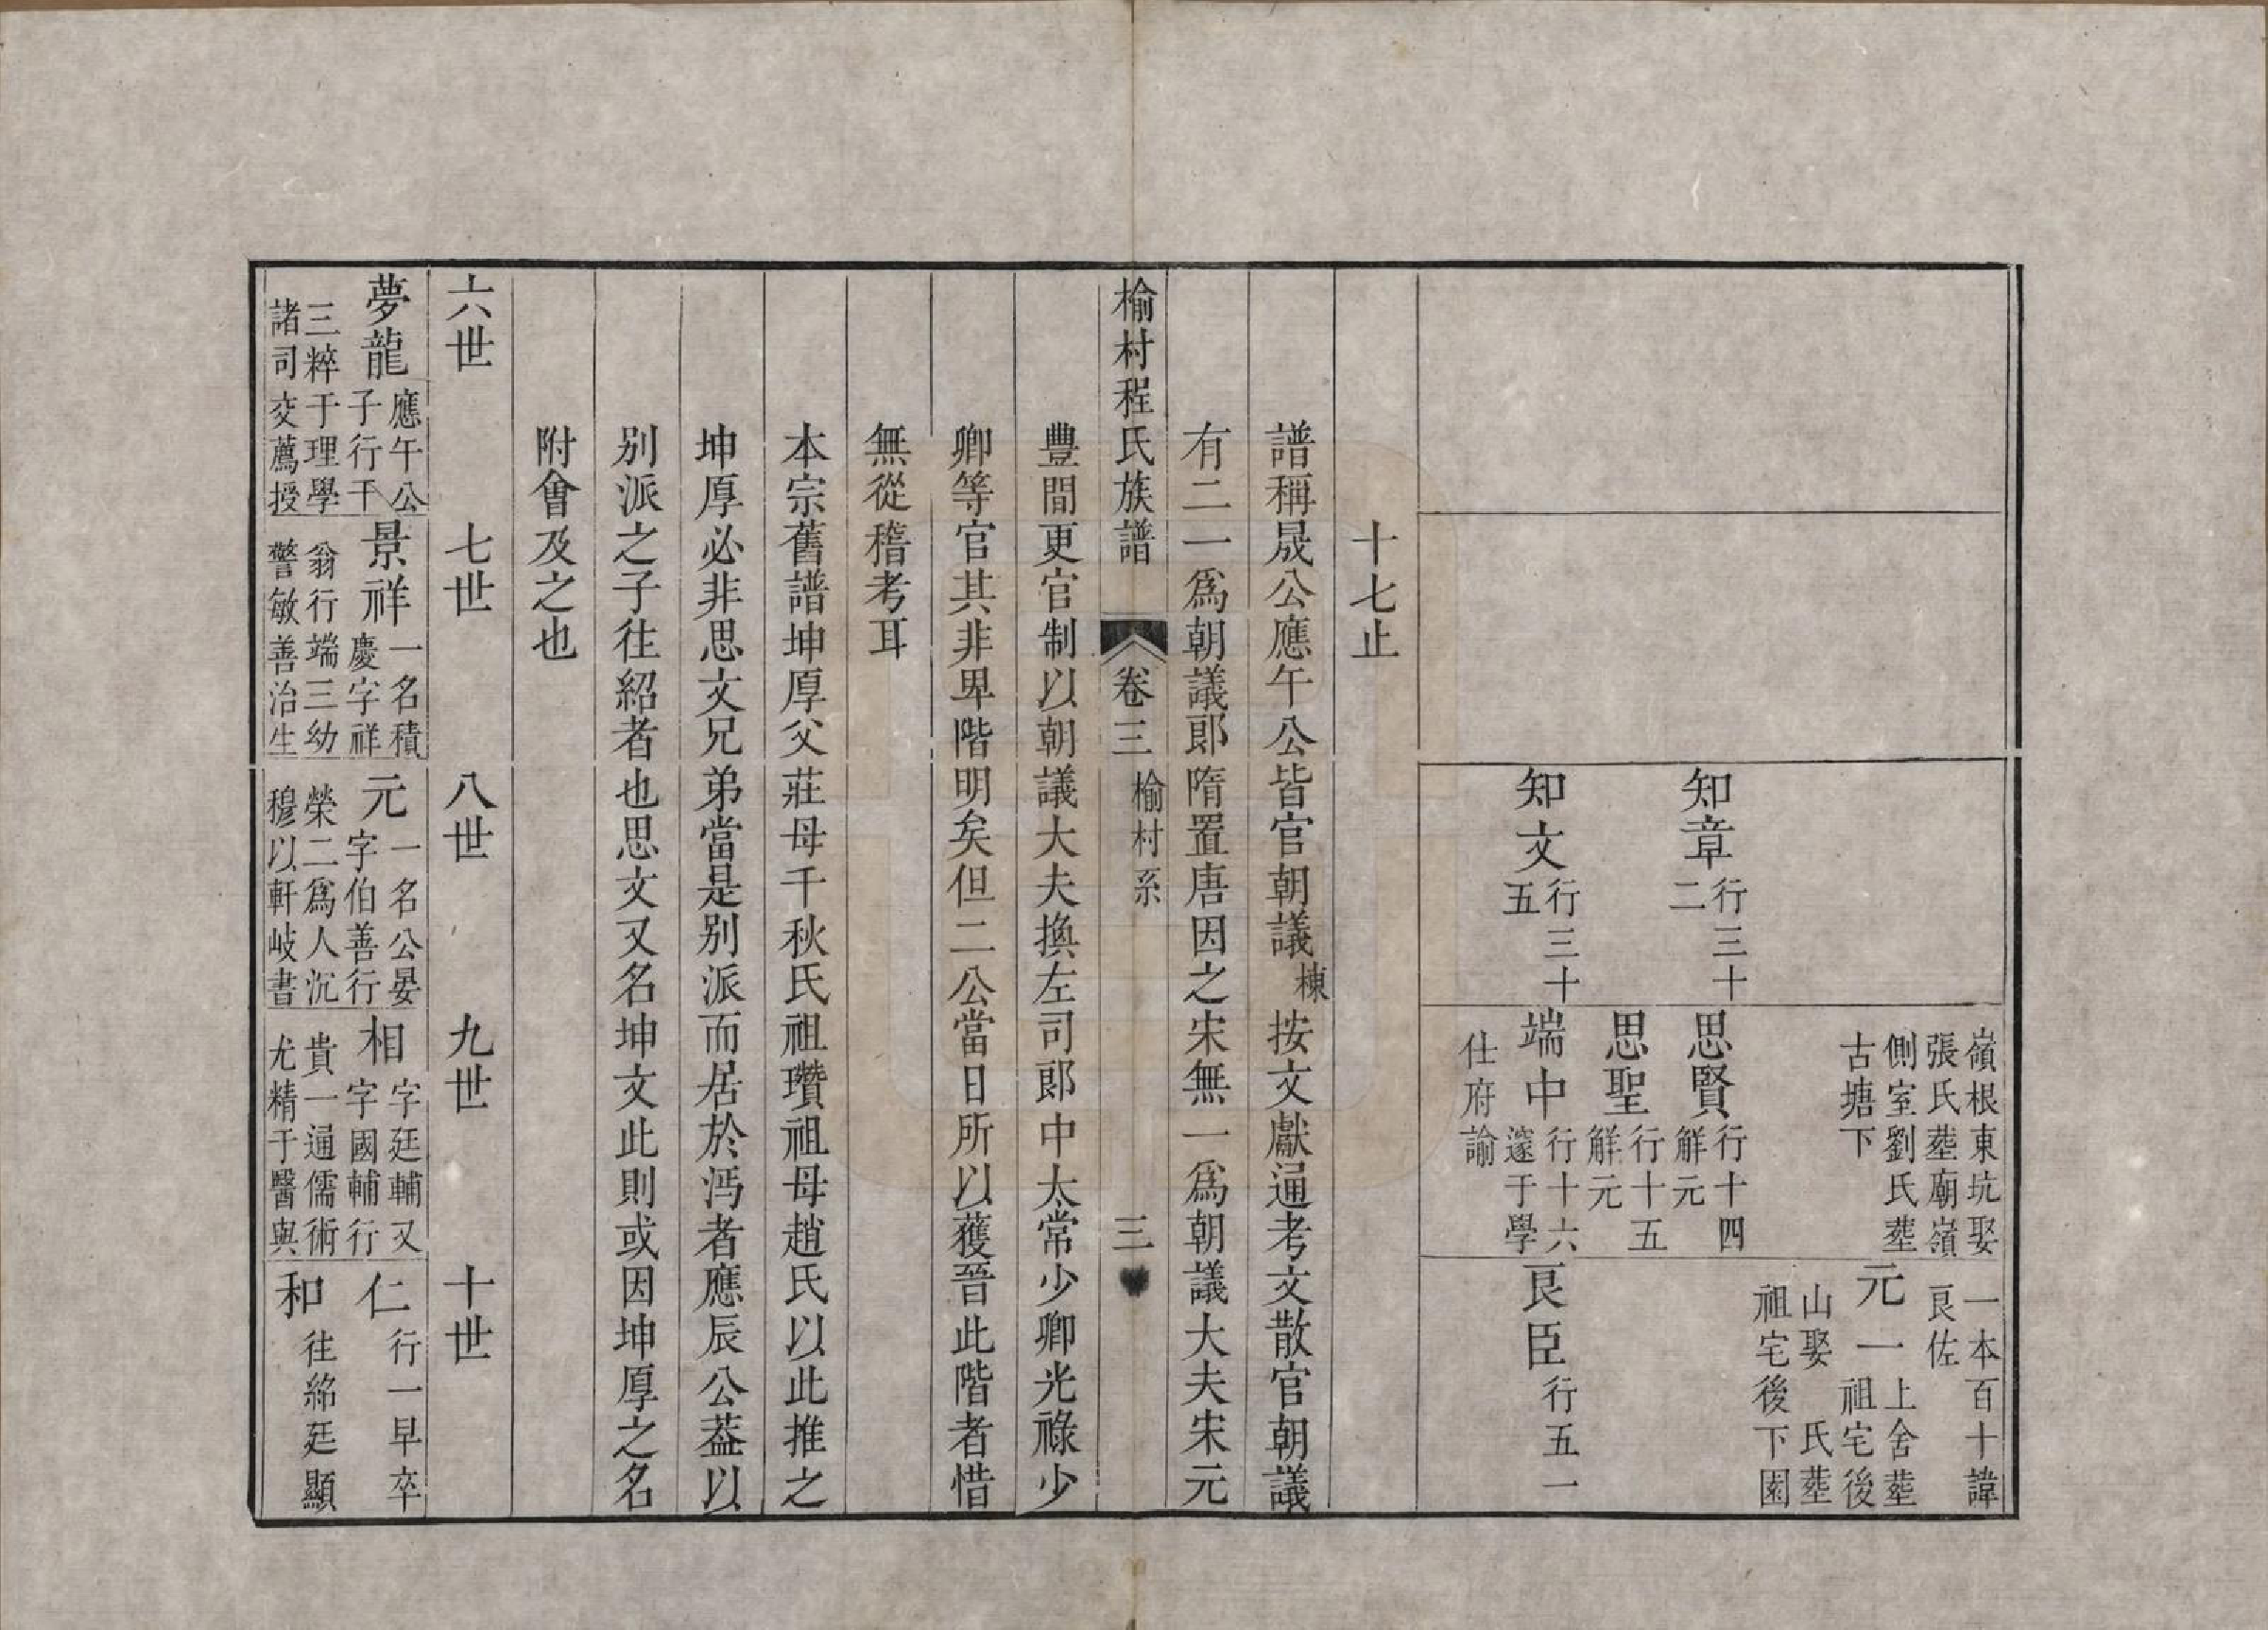 嶺根東坑娶
張氏塟廟嶺
側室劉氏塟
古塘下
一本百十諱
良佐
元一上舍塟
祖宅後
山娶　氏塟
祖宅後下園
知章行三十
二
思賢行十四
觧元
思聖行十五
觧元
知文行三十
五
端中行十六
邃于學
仕府諭
良臣行五一
十七止
譜稱晟公應午公皆官朝議棟按文獻通考文散官朝議
有二一爲朝議郎隋置唐因之宋無一爲朝議大夫宋元
榆村程氏族譜　卷三　榆村系　三
豐間更官制以朝議大夫換左司郎中太常少卿光祿少
卿等官其非卑階明矣但二公當日所以獲晉此階者惜
無從稽考耳
本宗舊譜坤厚父莊母千秋氏祖瓚祖母趙氏以此推之
坤厚必非思文兄弟當是别派而居於沔者應辰公葢以
别派之子往紹者也思文又名坤文此則或因坤厚之名
附會及之也
六世　七世　八世　九世　十世
夢龍應午公
子行千
三粹于理學
諸司交薦授
景祥一名積
慶字祥
翁行端三幼
警敏善治生
元一名公晏
字伯善行
榮二爲人沉
穆以軒岐書
相字廷輔又
字國輔行
貴一通儒術
尤精于醫與
仁行一早卒
和往紹廷顯